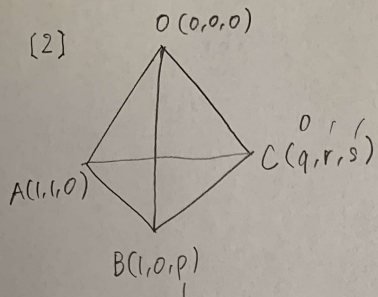 [2]
O(0,0,0)
0 1 1
C(q,r,s)
A(1,1,0)
B(1,0,p)
1